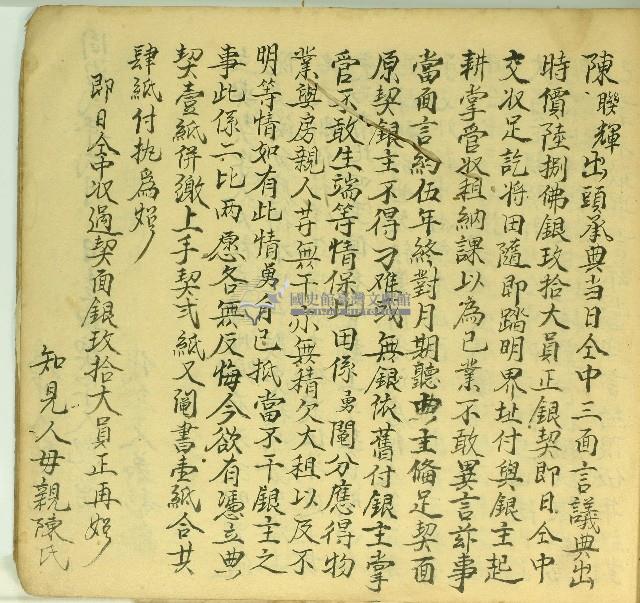 陳聯輝出頭承典当日仝中三面言議典出
時價陸捌佛銀玖拾大員正銀契即日仝中
交收足訖将田隨即踏明界址付與銀主起
耕掌管收租納課以為己業不敢異言茲事
當面言約伍年終對月期聽典主備足契面
原契銀主不得刁难或無銀依舊付銀主掌
管不敢生端等情保田係勇鬮分應得物
業與房親人等無干亦無積欠大租以及不
明等情如有此情勇自己抵當不干銀主之
事此係二比两愿各無反悔今欲有憑立典
契壹紙併繳上手契弍紙又鬮書壹紙合共
肆紙付执為炤
即日仝中收過契面銀玖拾大員正再炤
知見人母親陳氏
國史館臺灣文獻館